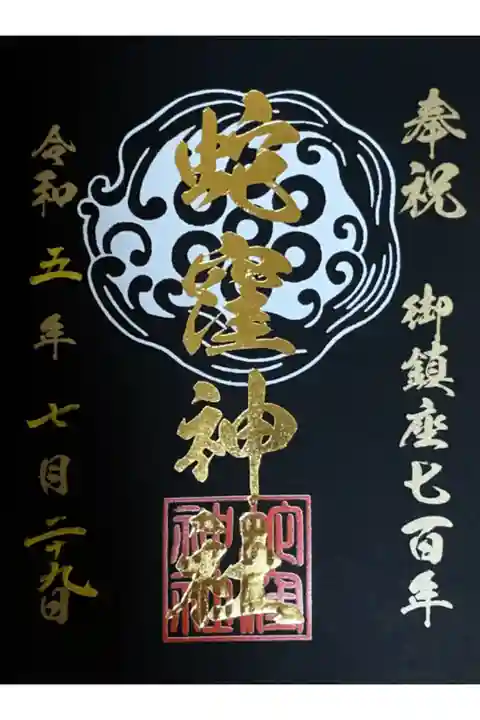 奉祝 御鎮座七百年
蛇窪神社
令和五年七月二十九日
蛇窪
神社